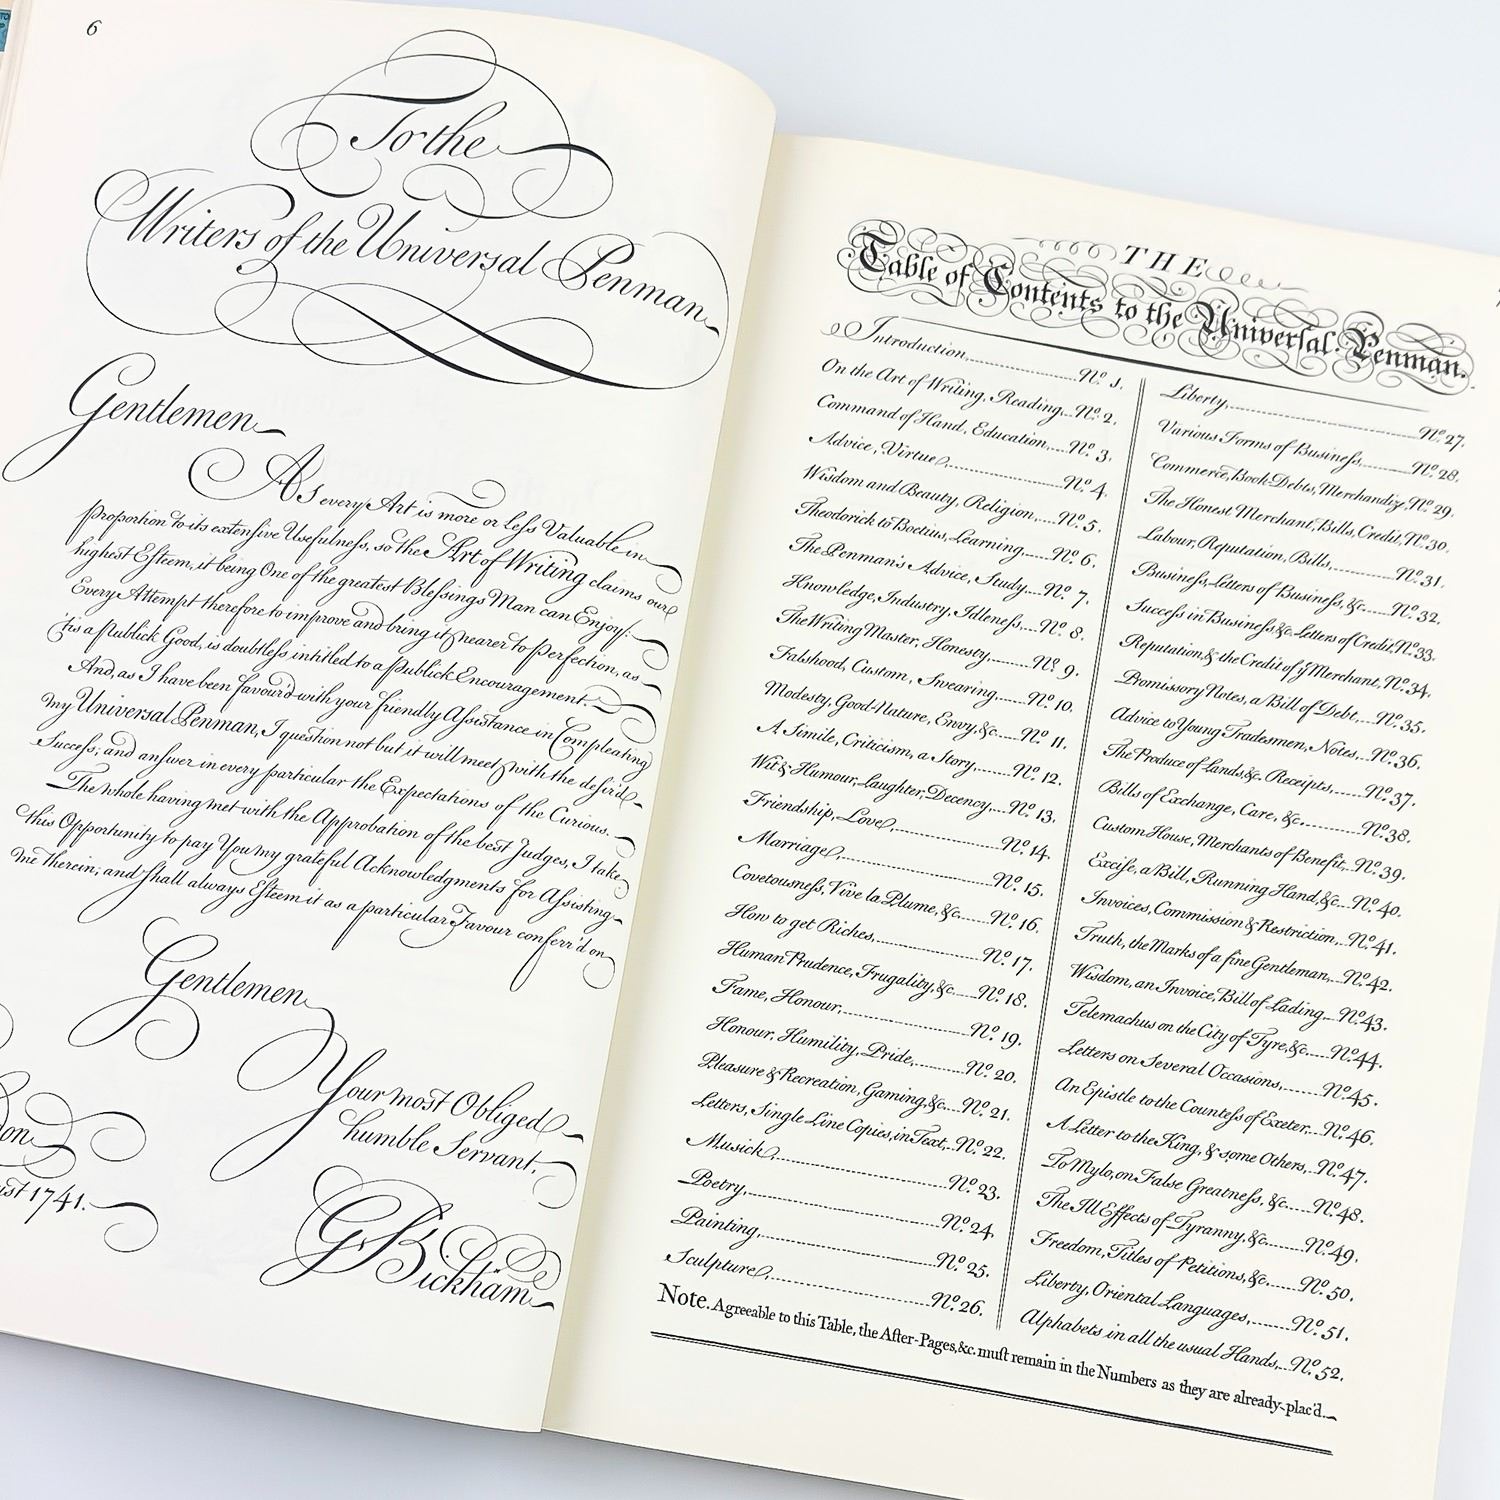 6
To the
Writers of the Universal Penman
Gentlemen
As every Art is more or leſs Valuable in
proportion to its extenſive Uſefulneſs, so the Art of Writing claims our
higheſt Eſteem, it being One of the greateſt Bleſsings Man can Enjoy:
Every Attempt therefore to improve and bring it nearer to Perfection, as
'tis a Publick Good, is doubtleſs intitled to a Publick Encouragement.
And, as I have been favour'd with your friendly Aſsistance in Compleating
my Universal Penman, I question not but it will meet with the deſir'd
Succeſs; and anſwer in every particular the Expectations of the Curious.
The whole having met with the Approbation of the best Judges, I take
this Opportunity to pay You my grateful Acknowledgments for Aſsisting
me therein; and ſhall always Eſteem it as a particular Favour conferr'd on
Gentlemen
Your most Obliged
humble Servant,
don
ust 1741.
G. Bickham
THE
Table of Contents to the Univerſal Penman.
Introduction, Nº 1.
On the Art of Writing, Reading, Nº 2.
Command of Hand, Education, Nº 3.
Advice, Virtue, Nº 4.
Wisdom and Beauty, Religion, Nº 5.
Theodorick to Boetius, Learning, Nº 6.
The Penman's Advice, Study, Nº 7.
Knowledge, Industry, Idleneſs, Nº 8.
The Writing Master, Honesty, Nº 9.
Falshood, Custom, Swearing, Nº 10.
Modesty, Good-Nature, Envy, &c. Nº 11.
A Simile, Criticism, a Story, Nº 12.
Wit & Humour, Laughter, Decency, Nº 13.
Friendship, Love, Nº 14.
Marriage, Nº 15.
Covetousneſs, Vive la Plume, &c. Nº 16.
How to get Riches, Nº 17.
Human Prudence, Frugality, &c. Nº 18.
Fame, Honour, Nº 19.
Honour, Humility, Pride, Nº 20.
Pleasure & Recreation, Gaming, &c. Nº 21.
Letters, Single Line Copies, in Text, Nº 22.
Musick, Nº 23.
Poetry, Nº 24.
Painting, Nº 25.
Sculpture, Nº 26.
Liberty, Nº 27.
Various Forms of Busineſs, Nº 28.
Commerce, Book-Debts, Merchandiz, Nº 29.
The Honest Merchant, Bills, Credit, Nº 30.
Labour, Reputation, Bills, Nº 31.
Busineſs, Letters of Busineſs, &c. Nº 32.
Succeſs in Busineſs & Letters of Credit, Nº 33.
Reputation, & the Credit of yᵉ Merchant, Nº 34.
Promissory Notes, a Bill of Debt, Nº 35.
Advice to Young Tradesmen, Notes, Nº 36.
The Produce of Lands, &c. Receipts, Nº 37.
Bills of Exchange, Care, &c. Nº 38.
Custom House, Merchants of Benefit, Nº 39.
Exciſe, a Bill, Running Hand, &c. Nº 40.
Invoices, Commission & Restriction, Nº 41.
Truth, the Marks of a fine Gentleman, Nº 42.
Wisdom, an Invoice, Bill of Lading, Nº 43.
Telemachus on the City of Tyre, &c. Nº 44.
Letters on Several Occasions, Nº 45.
An Epistle to the Counteſs of Exeter, Nº 46.
A Letter to the King, & some Others, Nº 47.
To Mylo, on False Greatneſs, &c. Nº 48.
The Ill Effects of Tyranny, &c. Nº 49.
Freedom, Titles of Petitions, &c. Nº 50.
Liberty, Oriental Languages, Nº 51.
Alphabets in all the usual Hands, Nº 52.
Note. Agreeable to this Table, the After-Pages, &c. muſt remain in the Numbers as they are already plac'd.